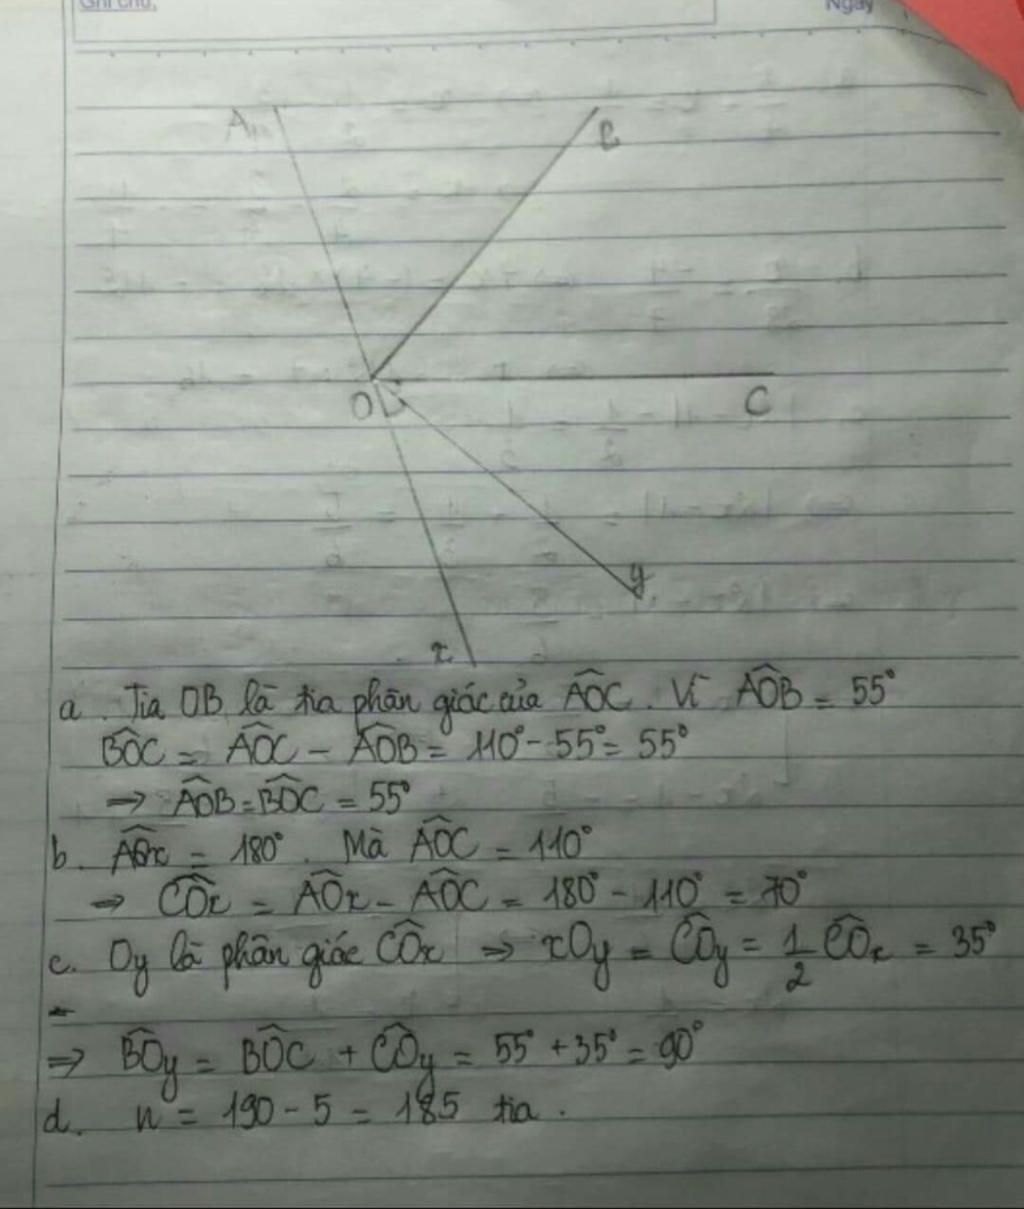 Ghi chú:
Ngày
A
B
O
C
y
x
a. Tia OB là tia phân giác của AÔC. Vì AÔB = 55°
BÔC = AÔC - AÔB = 110° - 55° = 55°
⇒ AÔB = BÔC = 55°
b. AÔx = 180°. Mà AÔC = 110°
⇒ CÔx = AÔx - AÔC = 180° - 110° = 70°
c. Oy là phân giác CÔx ⇒ xOy = CÔy = 1/2 CÔx = 35°
⇒ BÔy = BÔC + CÔy = 55° + 35° = 90°
d. n = 190 - 5 = 185 tia.